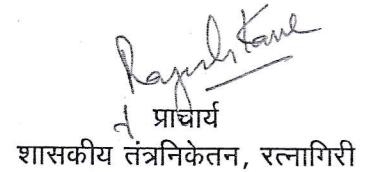 प्राचार्य
शासकीय तंत्रनिकेतन, रत्नागिरी